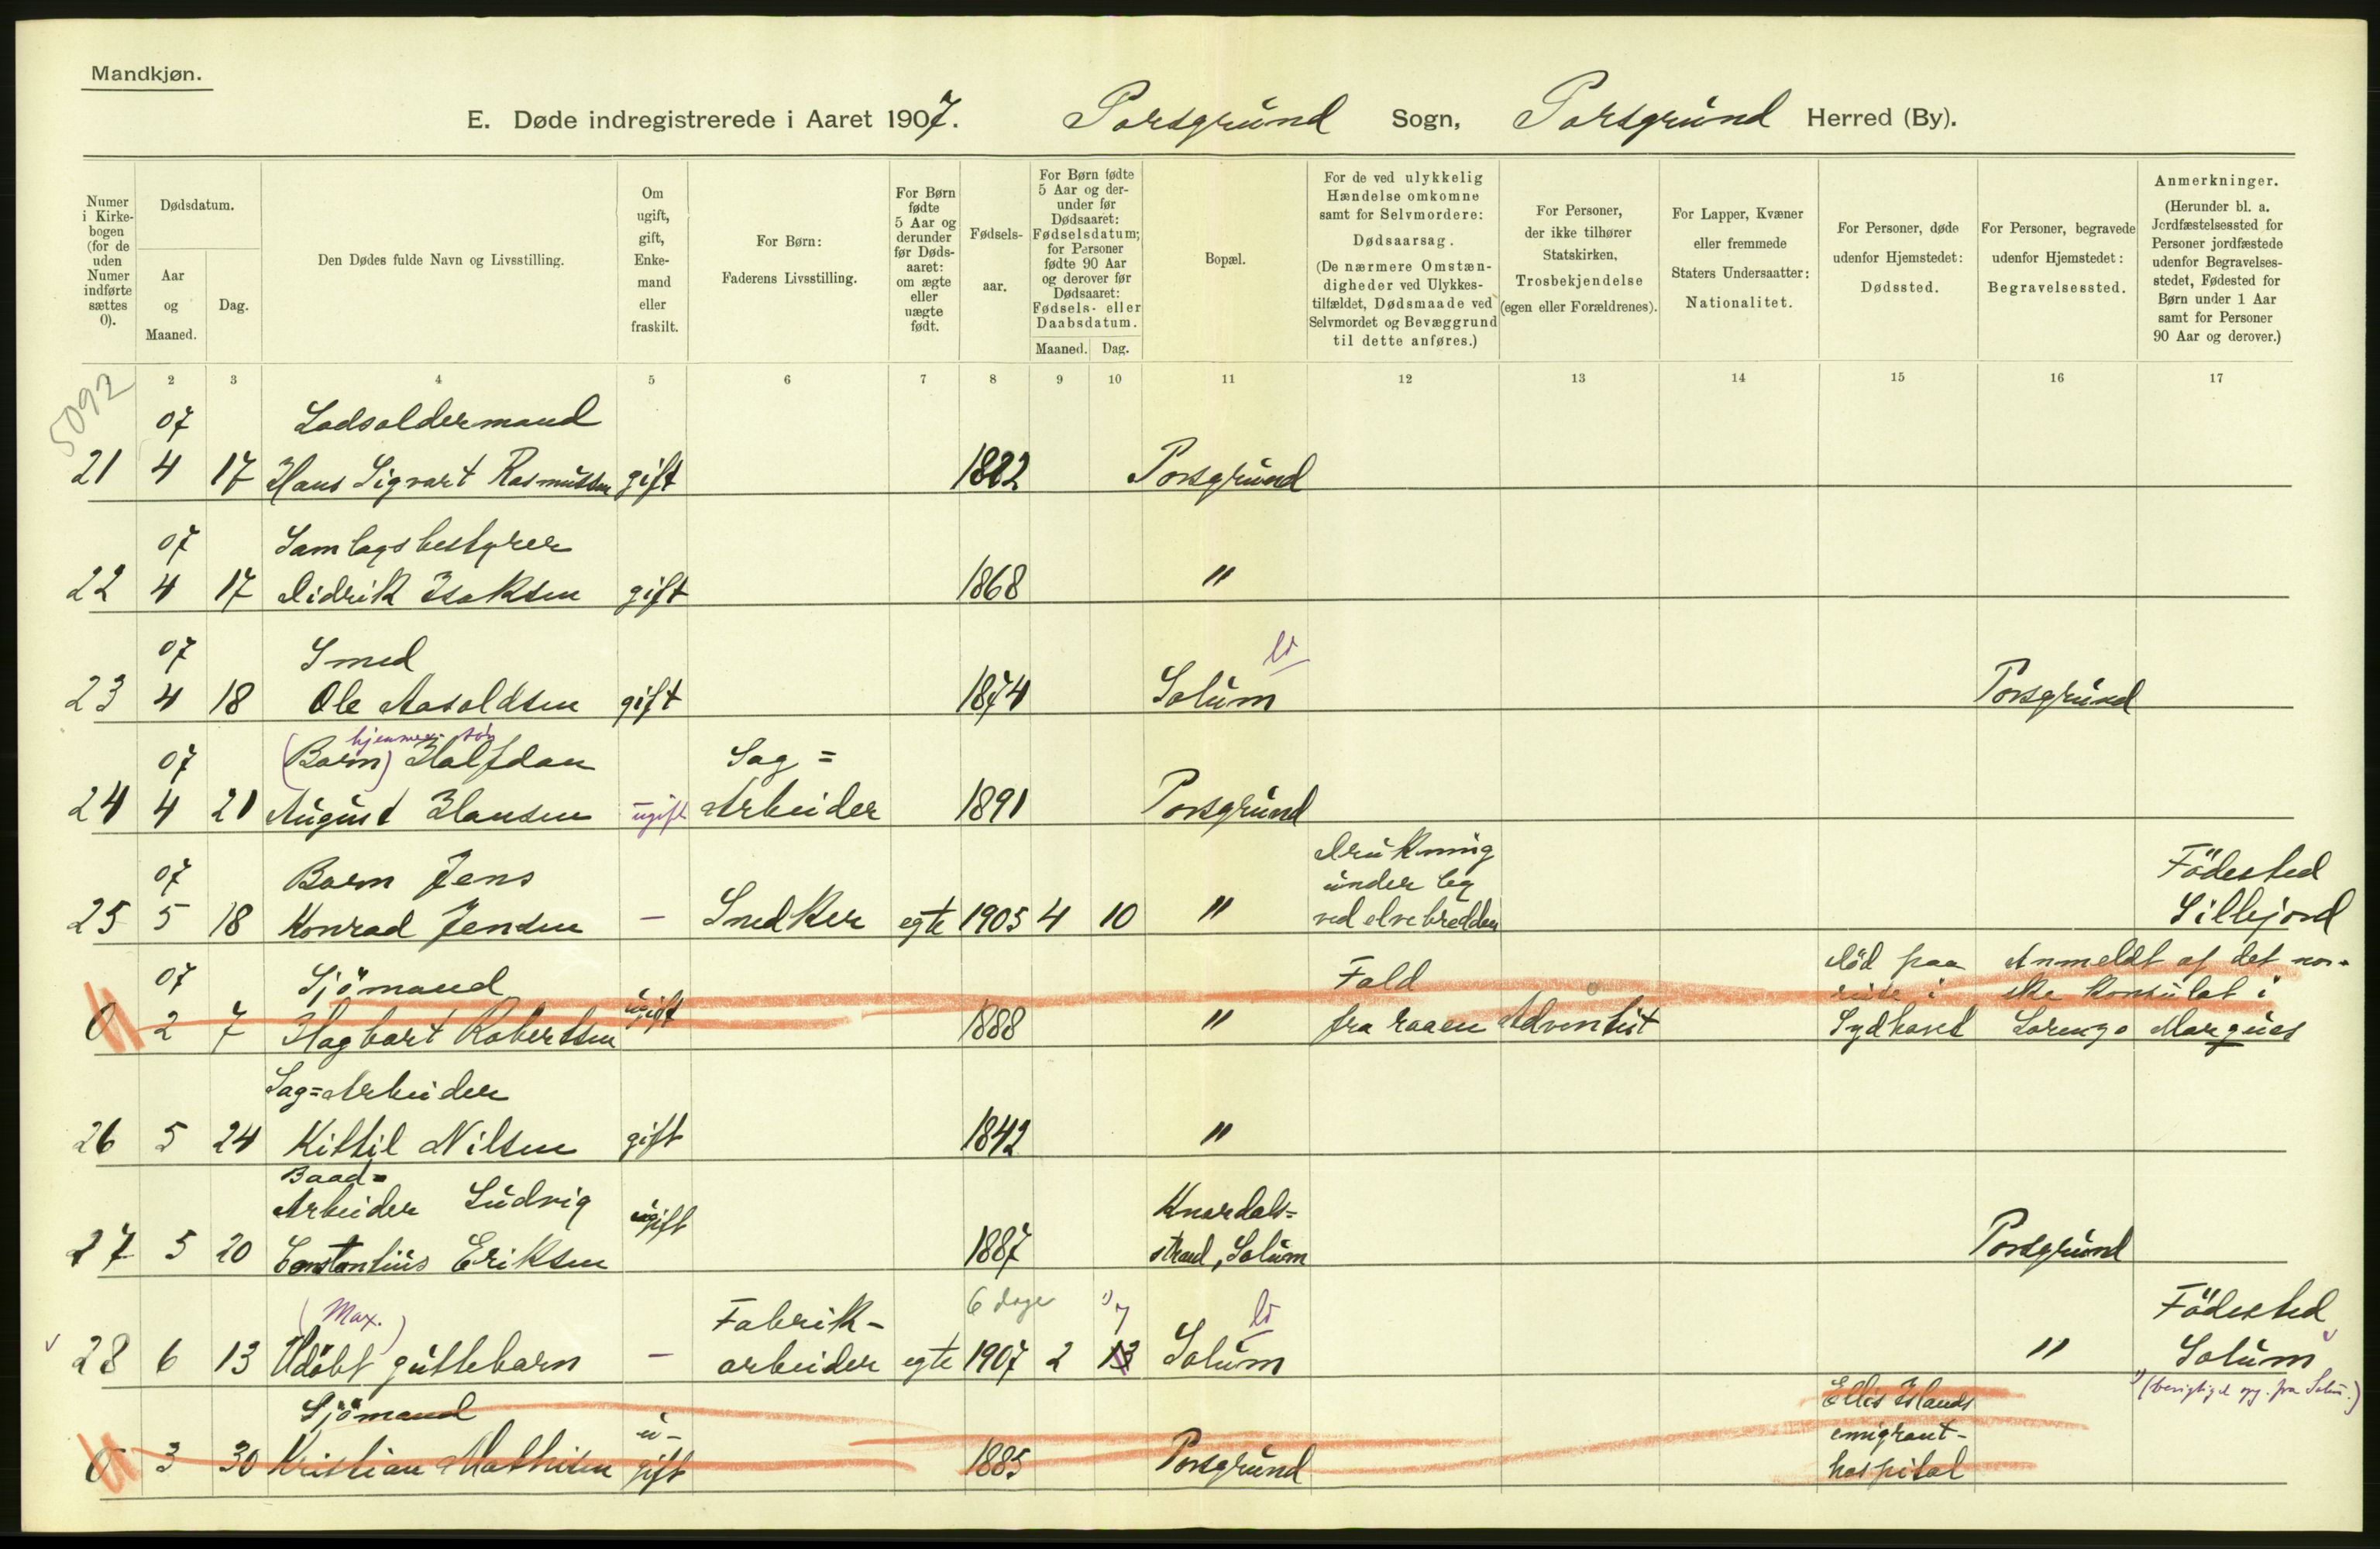 Mandkjøn.
E. Døde indregistrerede i Aaret 1907. Porsgrund Sogn, Porsgrund Herred (By).
Numer i Kirke-bogen (for de uden Numer indførte sættes 0).
Dødsdatum.
Aar og Maaned.
Dag.
Den Dødes fulde Navn og Livsstilling.
Om ugift, gift, Enke-mand eller fraskilt.
For Børn: Faderens Livsstilling.
For Børn fødte 5 Aar og derunder før Døds-aaret: om ægte eller uægte født.
Fødsels-aar.
For Børn fødte 5 Aar og der-under før Dødsaaret: Fødselsdatum; for Personer fødte 90 Aar og derover før Dødsaaret: Fødsels- eller Daabsdatum.
Maaned. Dag.
Bopæl.
For de ved ulykkelig Hændelse omkomne samt for Selvmordere: Dødsaarsag. (De nærmere Omstæn-digheder ved Ulykkes-tilfældet, Dødsmaade ved Selvmordet og Bevæggrund til dette anføres.)
For Personer, der ikke tilhører Statskirken, Trosbekjendelse (egen eller Forældrenes).
For Lapper, Kvæner eller fremmede Staters Undersaatter: Nationalitet.
For Personer, døde udenfor Hjemstedet: Dødssted.
For Personer, begravede udenfor Hjemstedet: Begravelsessted.
Anmerkninger. (Herunder bl. a. Jordfæstelsessted for Personer jordfæstede udenfor Begravelses-stedet, Fødested for Børn under 1 Aar samt for Personer 90 Aar og derover.)
2 3 4 5 6 7 8 9 10 11 12 13 14 15 16 17
5092
07 Lodsoldermand
21 4 17 Hans Sigvart Rasmussen gift 1822 Porsgrund
07 Samlagsbestyrer
22 4 17 Didrik Isaksen gift 1868 "
07 Smed
23 4 18 Ole Aasoldsen gift 1874 Solum Porsgrund
07 (Barn) Halfdan Sag=
24 4 21 August Hansen ugift Arbeider 1891 Porsgrund
07 Barn Jens Drukning under leg Födested
25 5 18 Konrad Jensen — Snedker egte 1905 4 10 " ved elvebredden Sillejord
07 Sjömand ugift Fald Död paa reise i Anmeldt af det nor-ske Konsulat i
0 2 7 Hagbart Robertsen 1888 " fra raaen Adventist Sydhavet Lorenzo Marques
Sag=Arbeider
26 5 24 Kittil Nilsen gift 1842 "
Baad=
Arbeider Ludvig ugift Knardals=
27 5 20 Constantius Eriksen 1887 strand, Solum Porsgrund
(Max.) Fabrik- 6 dage 1) 7 Födested
28 6 13 Udöbt guttebarn — arbeider egte 1907 2 13 Solum " Solum
1) (berigtiget opg. fra Solum.)
Sjömand u- Ellis Islands
emigrant-
0 3 30 Kristian Mathisen gift 1885 Porsgrund hospital